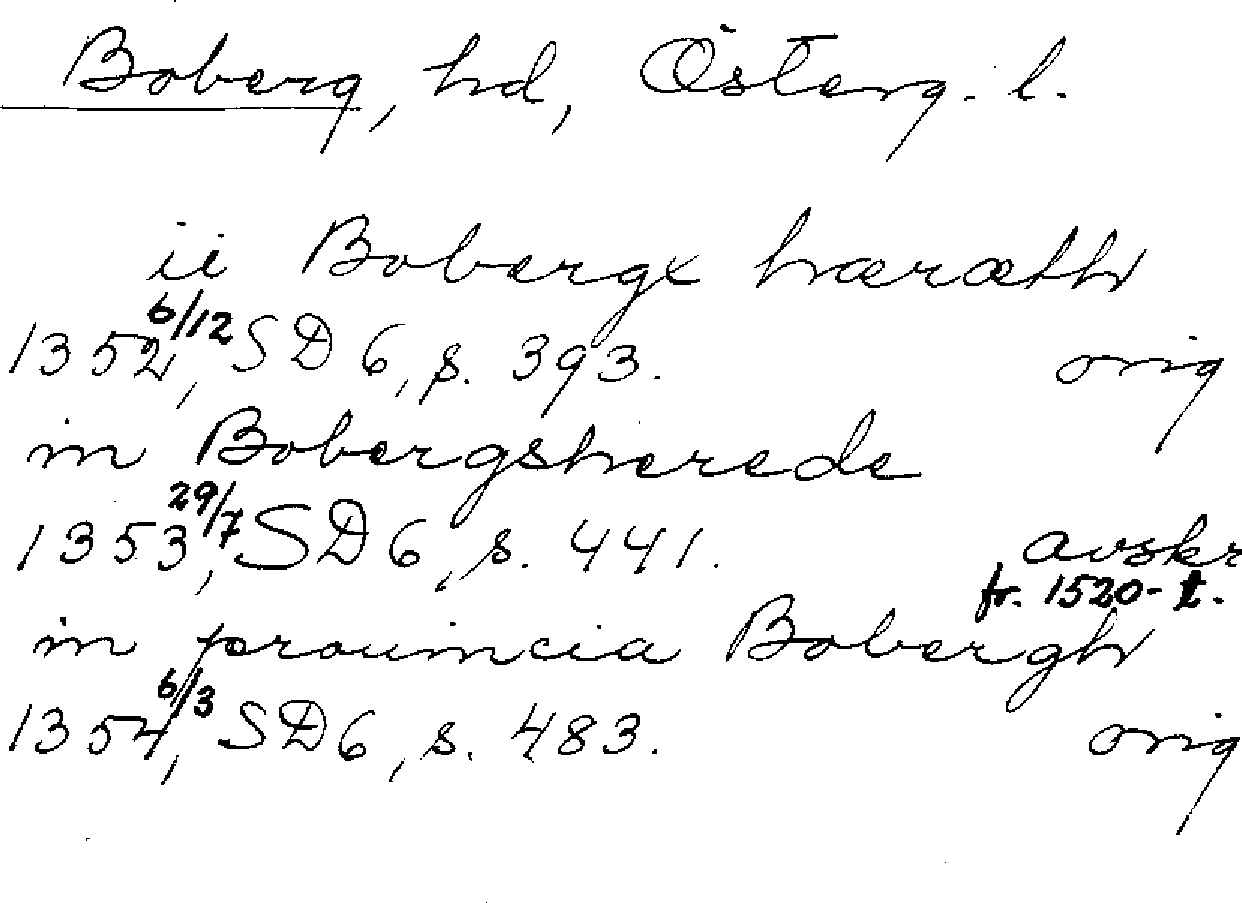 Boberg, hd, Österg. l.
ii Bobergx hæræth
1352 6/12, SD 6, s. 393. orig
in Bobergsherede
1353 29/7, SD 6, s. 441. avskr
fr. 1520-t.
in prouincia Bobergh
1354 6/3, SD 6, s. 483. orig